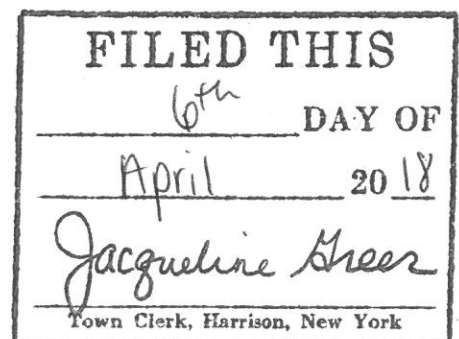 FILED THIS
6th DAY OF
April 20 18
Jacqueline Greer
Town Clerk, Harrison, New York